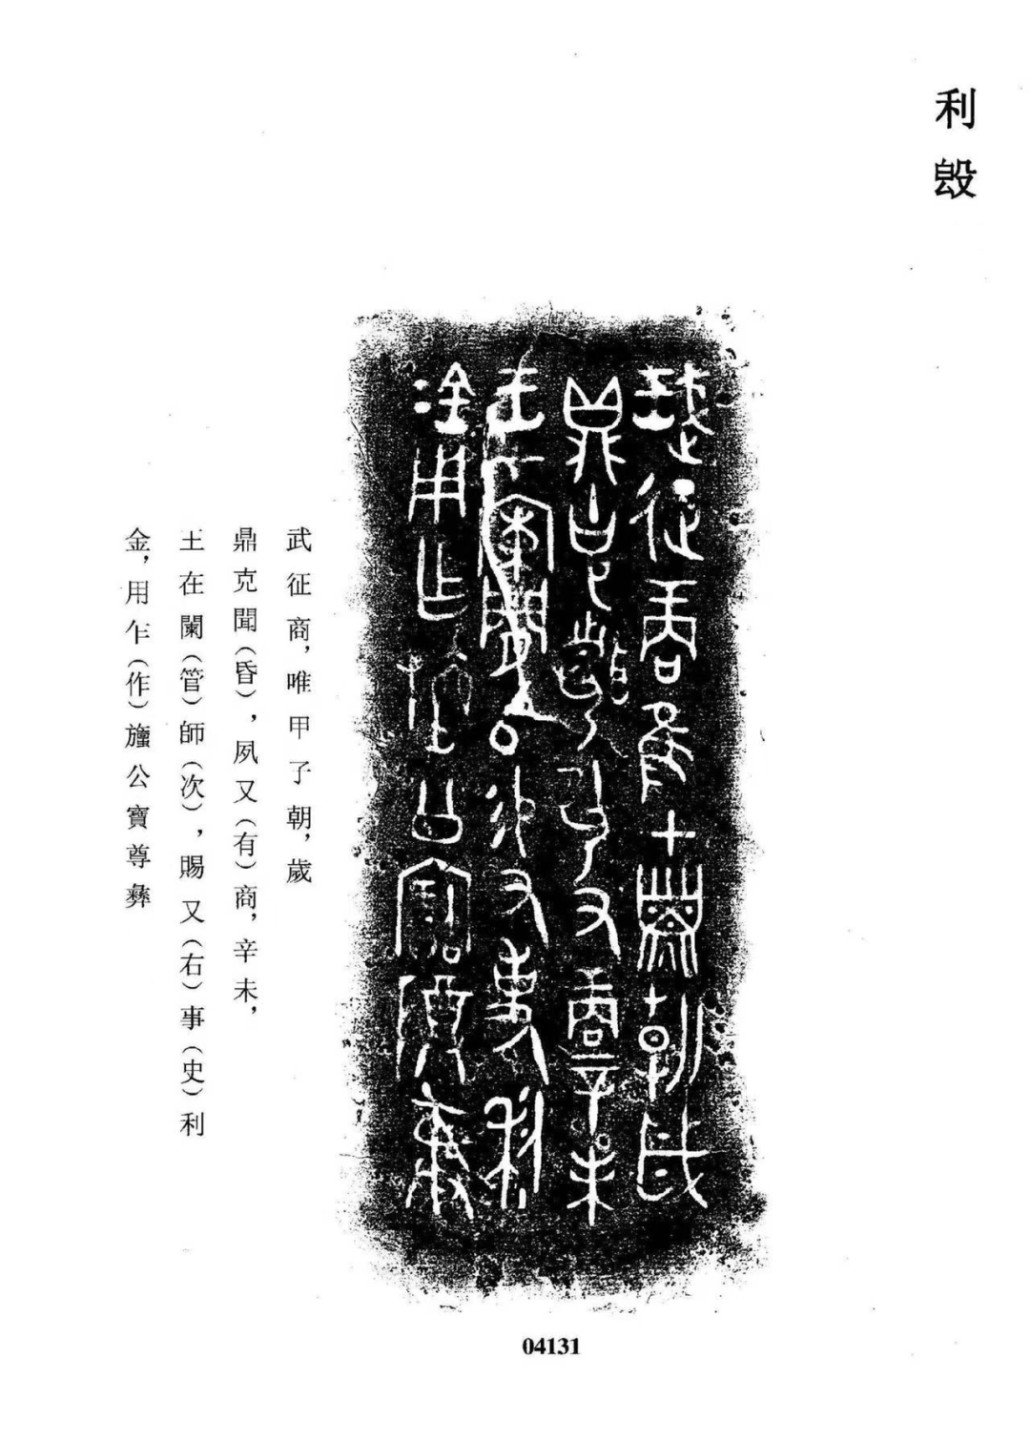 利𣪘
武征商，唯甲子朝，歲
鼎克聞（昏），夙又（有）商，辛未，
王在闌（管）師（次），賜又（右）事（史）利
金，用乍（作）旜公寶尊彝
04131